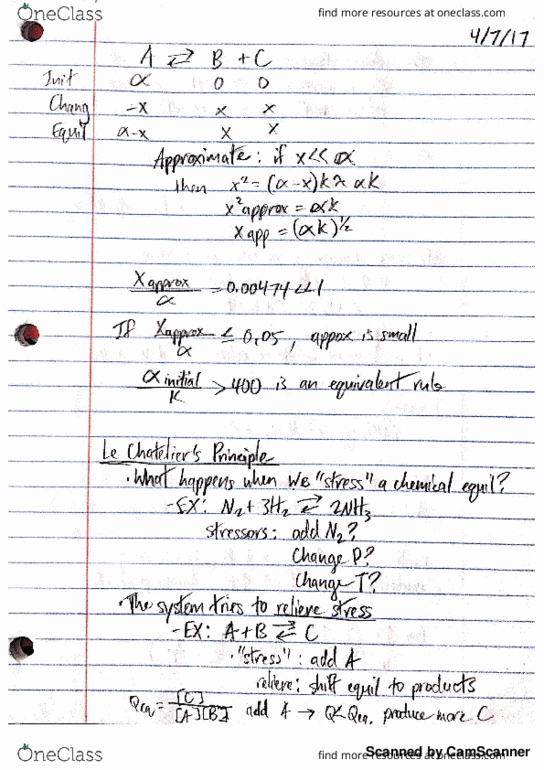 OneClass find more resources at oneclass.com
4/7/17
A ⇄ B + C
Init α 0 0
Chang -x x x
Equil α-x x x
Approximate: if x<<α
then x²=(α-x)k≈αk
x²approx=αk
x app=(αk)^½
Xapprox/α = 0.00474<<1
If Xapprox/α ≤ 0.05, appox is small
αinitial/K > 400 is an equivalent rule
Le Chatelier's Principle
·What happens when we "stress" a chemical equil?
-EX: N₂+3H₂⇄2NH₃
stressors: add N₂?
Change P?
Change T?
·The system tries to relieve stress
-EX: A+B⇄C
·"stress": add A
relieve: shift equil to products
Qeq=[C]/[A][B] add A → Q<Qeq, produce more C
OneClass find more resources at oneclass.com
Scanned by CamScanner